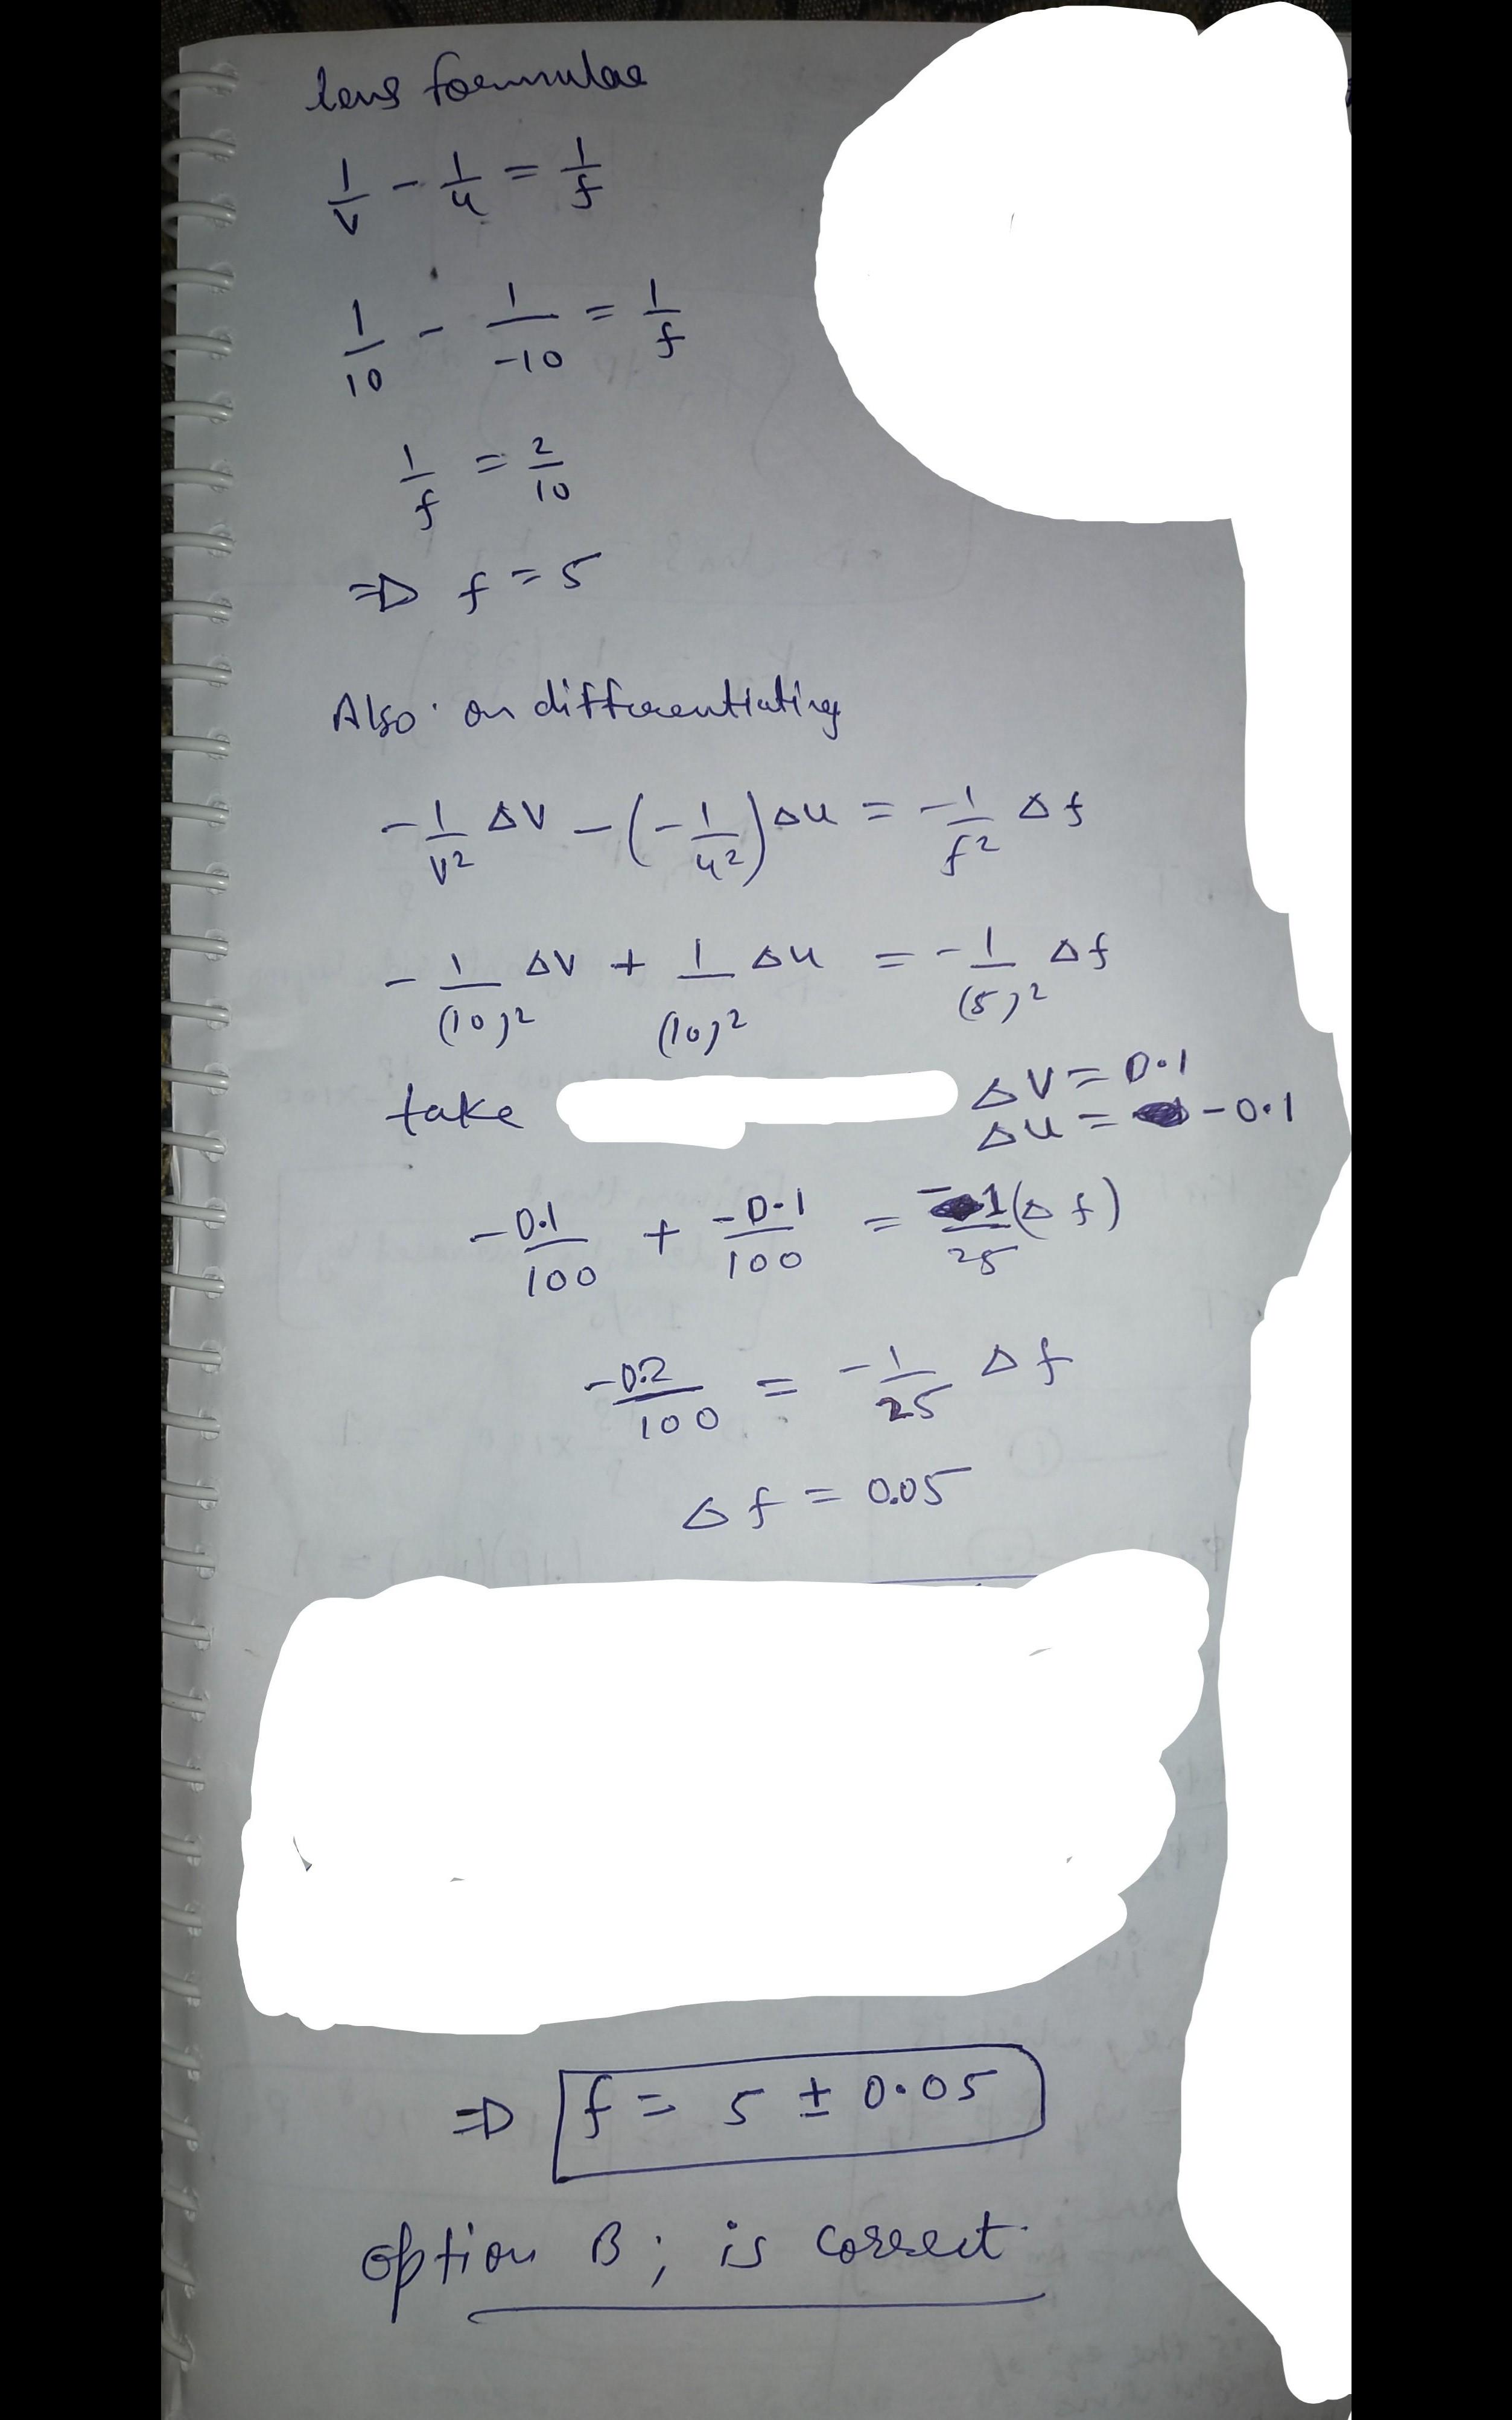 lens formulae
1/v - 1/u = 1/f
1/10 - 1/-10 = 1/f
1/f = 2/10
⇒ f = 5
Also on differentiating
-1/v² Δv - (-1/u²) Δu = -1/f² Δf
-1/(10)² Δv + 1/(10)² Δu = -1/(5)² Δf
take Δv = 0.1
Δu = -0.1
-0.1/100 + -0.1/100 = -1/25 (Δf)
-0.2/100 = -1/25 Δf
Δf = 0.05
⇒ f = 5 ± 0.05
option B; is correct